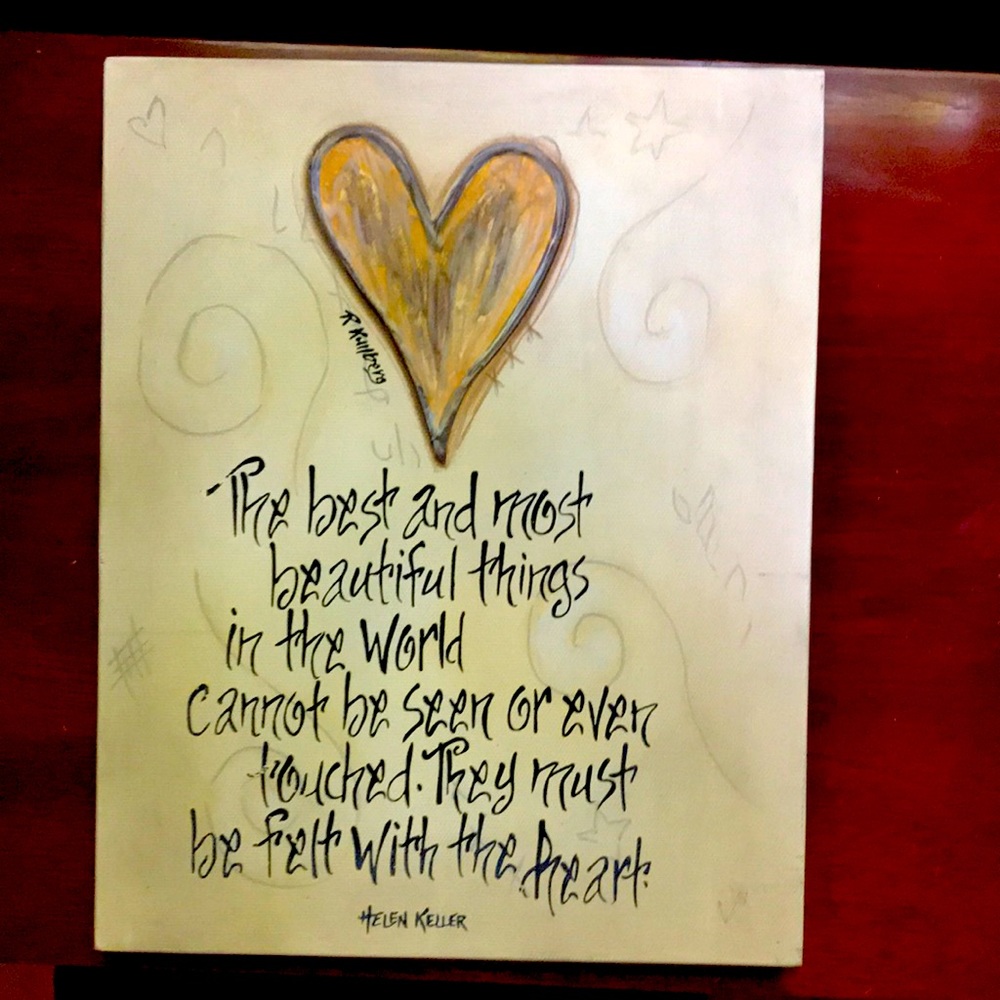 R Kullberg
The best and most
beautiful things
in the World
cannot be seen or even
touched. They must
be felt with the heart.
HELEN KELLER